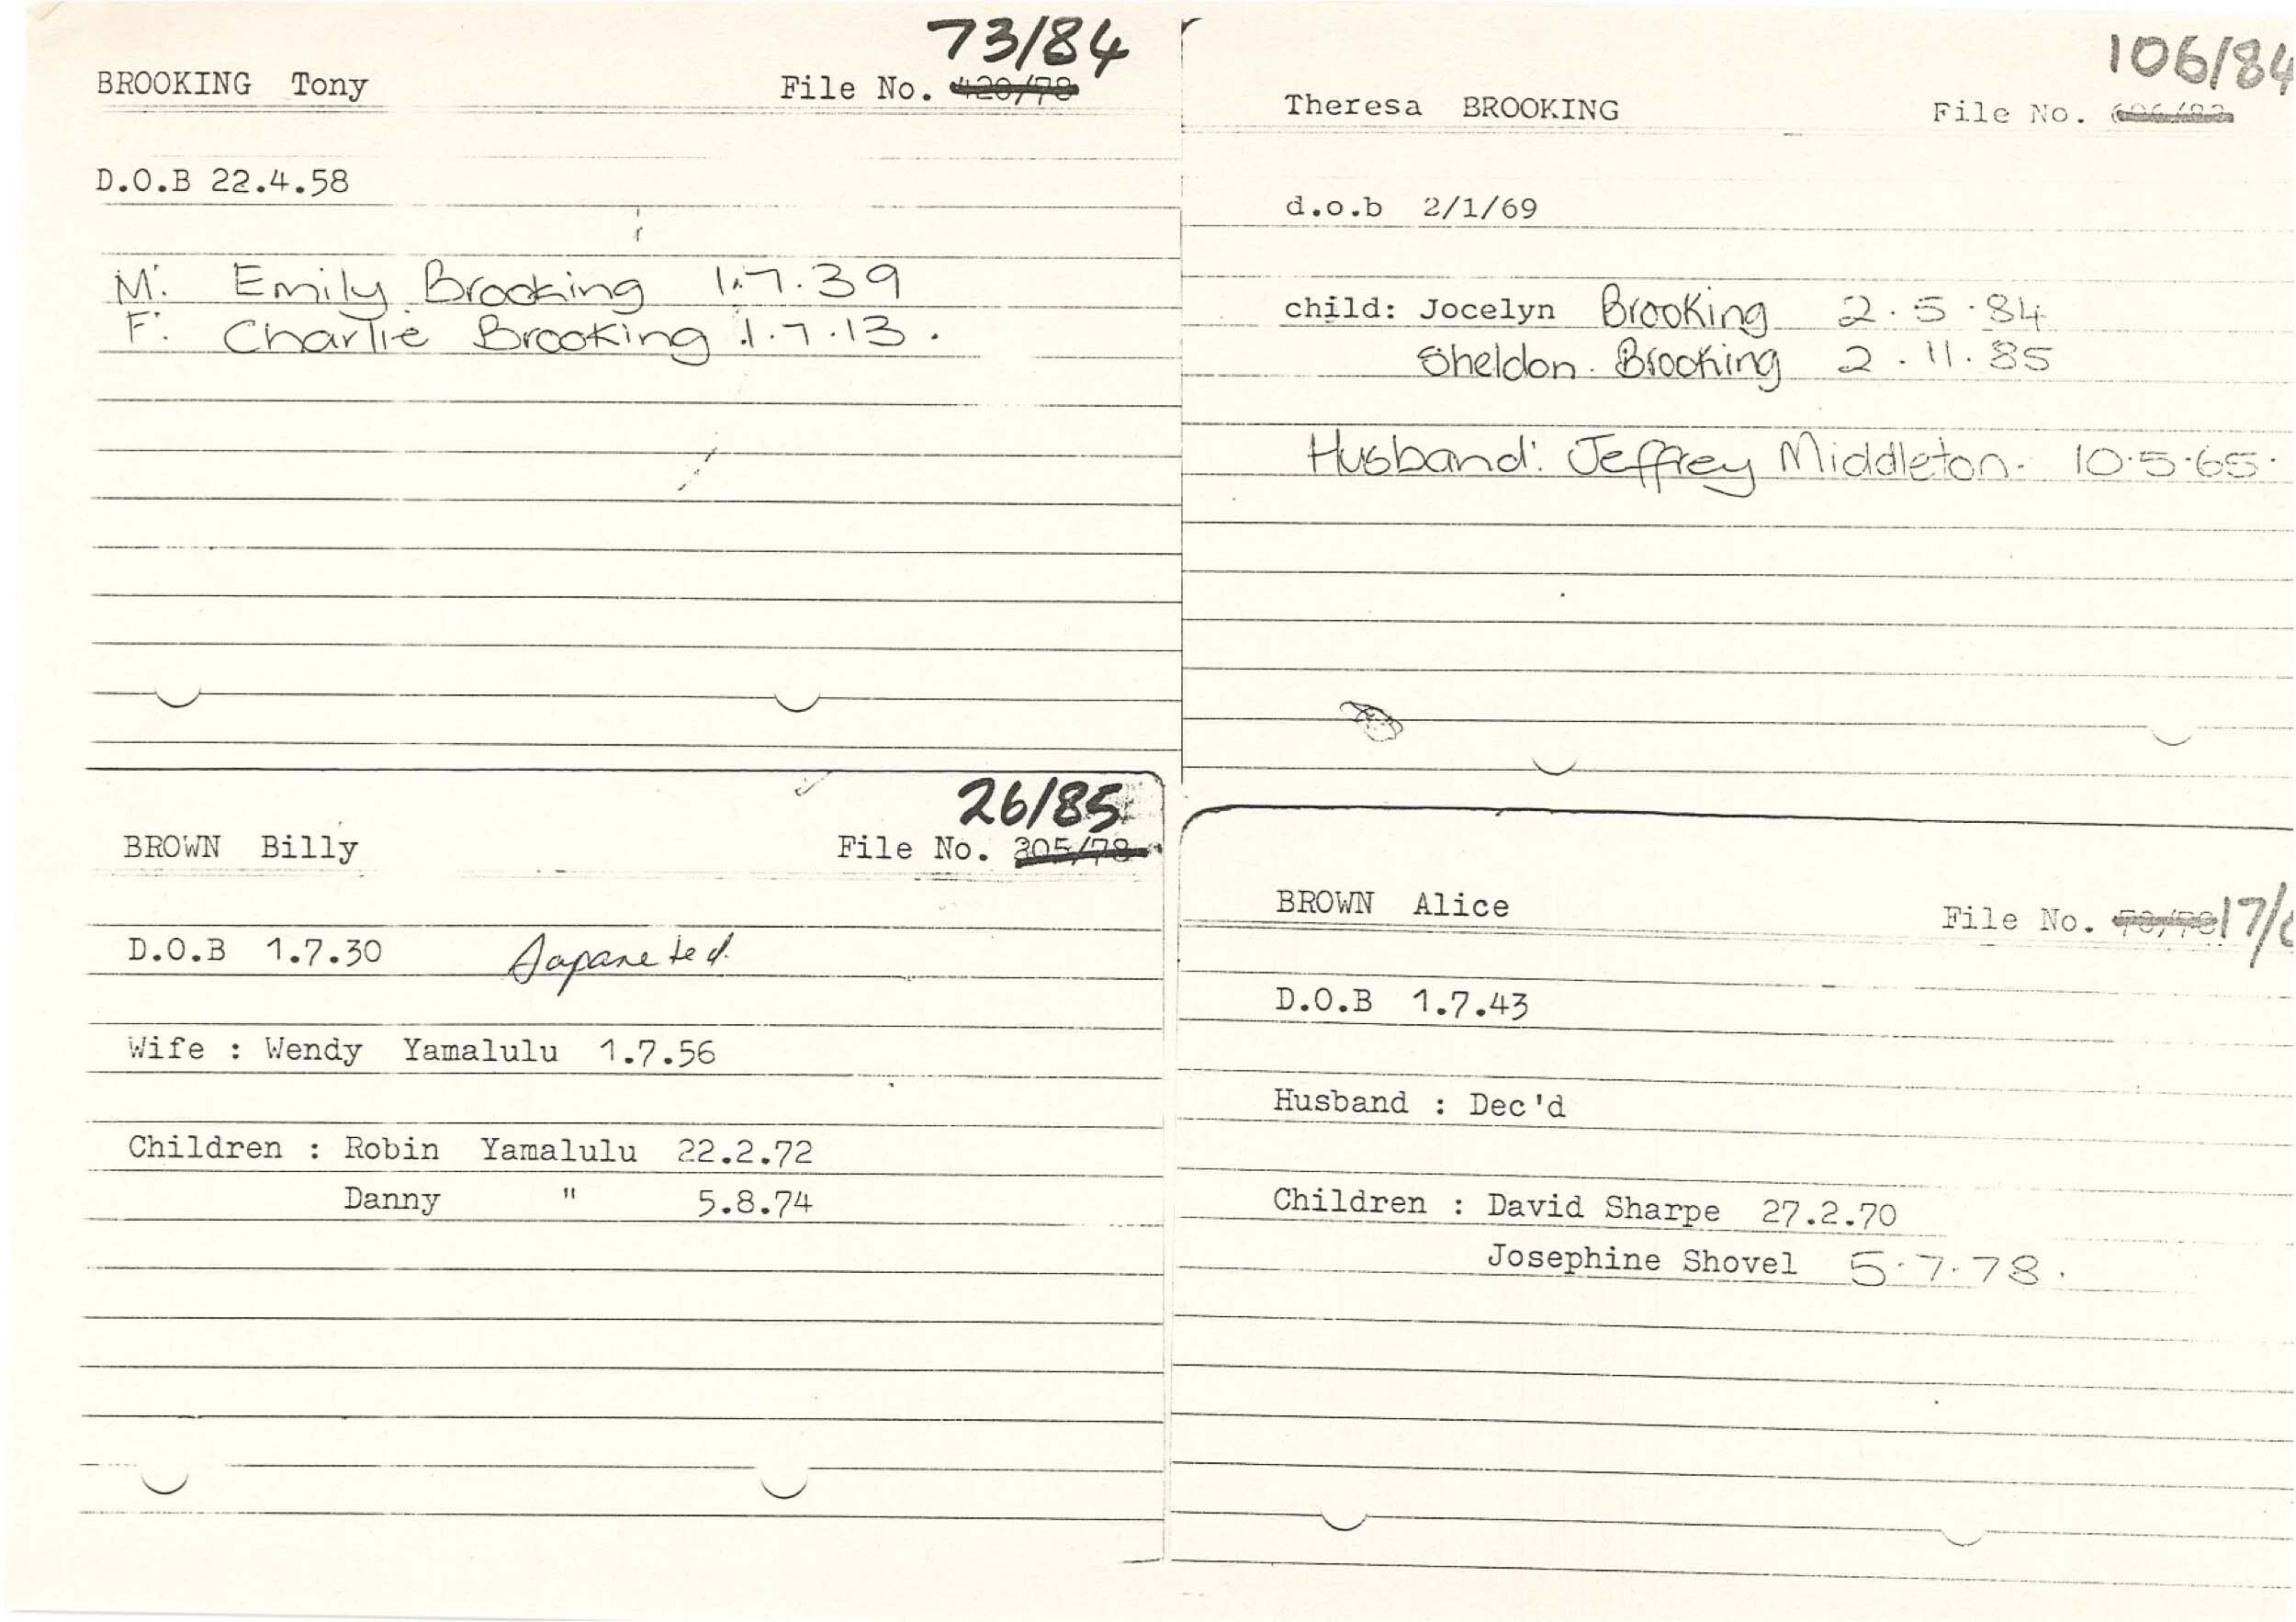 73/84
BROOKING Tony File No. 420/78
D.O.B 22.4.58
M: Emily Brooking 1.7.39
F: Charlie Brooking 1.7.13.
106/84
Theresa BROOKING File No.
d.o.b 2/1/69
child: Jocelyn Brooking 2.5.84
Sheldon Brooking 2.11.85
Husband: Jeffrey Middleton 10.5.65.
26/85
BROWN Billy File No. 305/78
D.O.B 1.7.30 Saparated.
Wife : Wendy Yamalulu 1.7.56
Children : Robin Yamalulu 22.2.72
Danny " 5.8.74
BROWN Alice File No. 17/
D.O.B 1.7.43
Husband : Dec'd
Children : David Sharpe 27.2.70
Josephine Shovel 5.7.78.